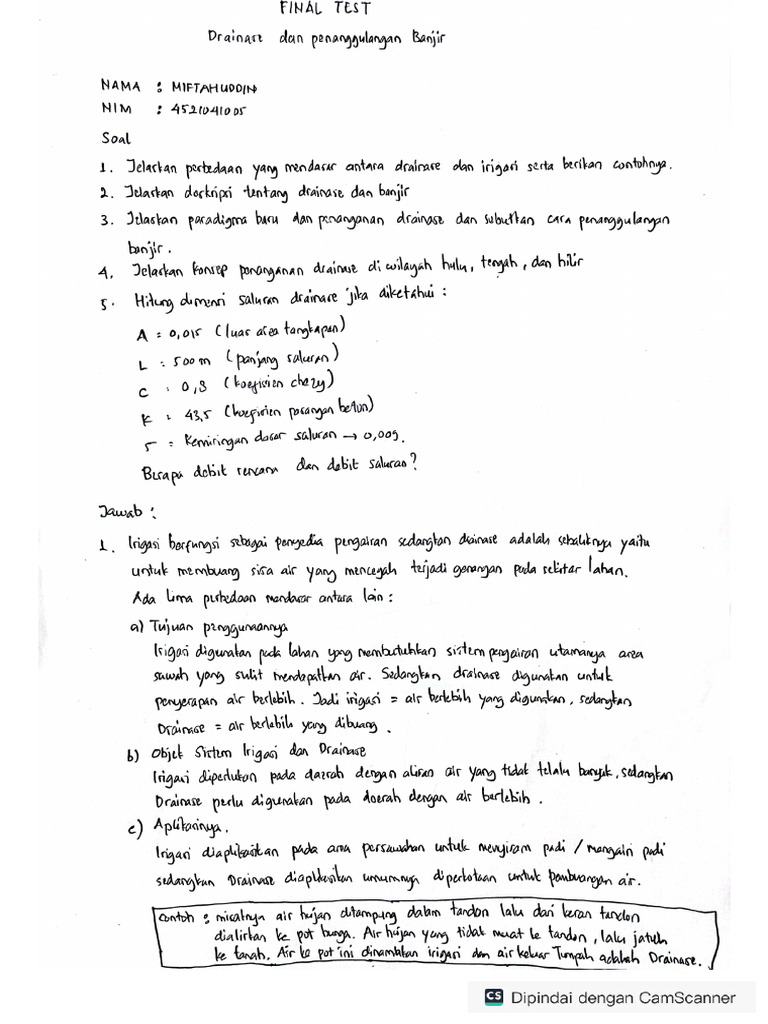 FINAL TEST
Drainase dan penanggulangan Banjir
NAMA : MIFTAHUDDIN
NIM : 4521041005
Soal
1. Jelaskan perbedaan yang mendasar antara drainase dan irigasi serta berikan contohnya.
2. Jelaskan deskripsi tentang drainase dan banjir
3. Jelaskan paradigma baru dan penanganan drainase dan sebutkan cara penanggulangan
banjir.
4. Jelaskan konsep penanganan drainase di wilayah hulu, tengah, dan hilir
5. Hitung dimensi saluran drainase jika diketahui :
A = 0,015 (luas area tangkapan)
L = 500 m (panjang saluran)
C = 0,8 (koefisien chezy)
K = 43,5 (koefisien pasangan beton)
S = Kemiringan dasar saluran → 0,009.
Berapa debit rencana dan debit saluran?
Jawab :
1. Irigasi berfungsi sebagai penyedia pengairan sedangkan drainase adalah sebaliknya yaitu
untuk membuang sisa air yang mencegah terjadi genangan pada sekitar lahan.
Ada Lima perbedaan mendasar antara lain :
a) Tujuan penggunaannya
Irigasi digunakan pada lahan yang membutuhkan sistem pengairan utamanya area
sawah yang sulit mendapatkan air. Sedangkan drainase digunakan untuk
penyerapan air berlebih. Jadi irigasi = air berlebih yang digunakan, sedangkan
Drainase = air berlebih yang dibuang.
b) Objek Sistem Irigasi dan Drainase
Irigasi diperlukan pada daerah dengan aliran air yang tidak telalu banyak, sedangkan
Drainase perlu digunakan pada daerah dengan air berlebih.
c) Aplikasinya.
Irigasi diaplikasikan pada area persawahan untuk menyiram padi / mengairi padi
sedangkan Drainase diaplikasikan umumnya diperkotaan untuk pembuangan air.
Contoh : misalnya air hujan ditampung dalam tandon lalu dari keran tandon
dialirkan ke pot bunga. Air hujan yang tidak muat ke tandon, lalu jatuh
ke tanah. Air ke pot ini dinamakan irigasi dan air keluar Tumpah adalah Drainase.
CS Dipindai dengan CamScanner